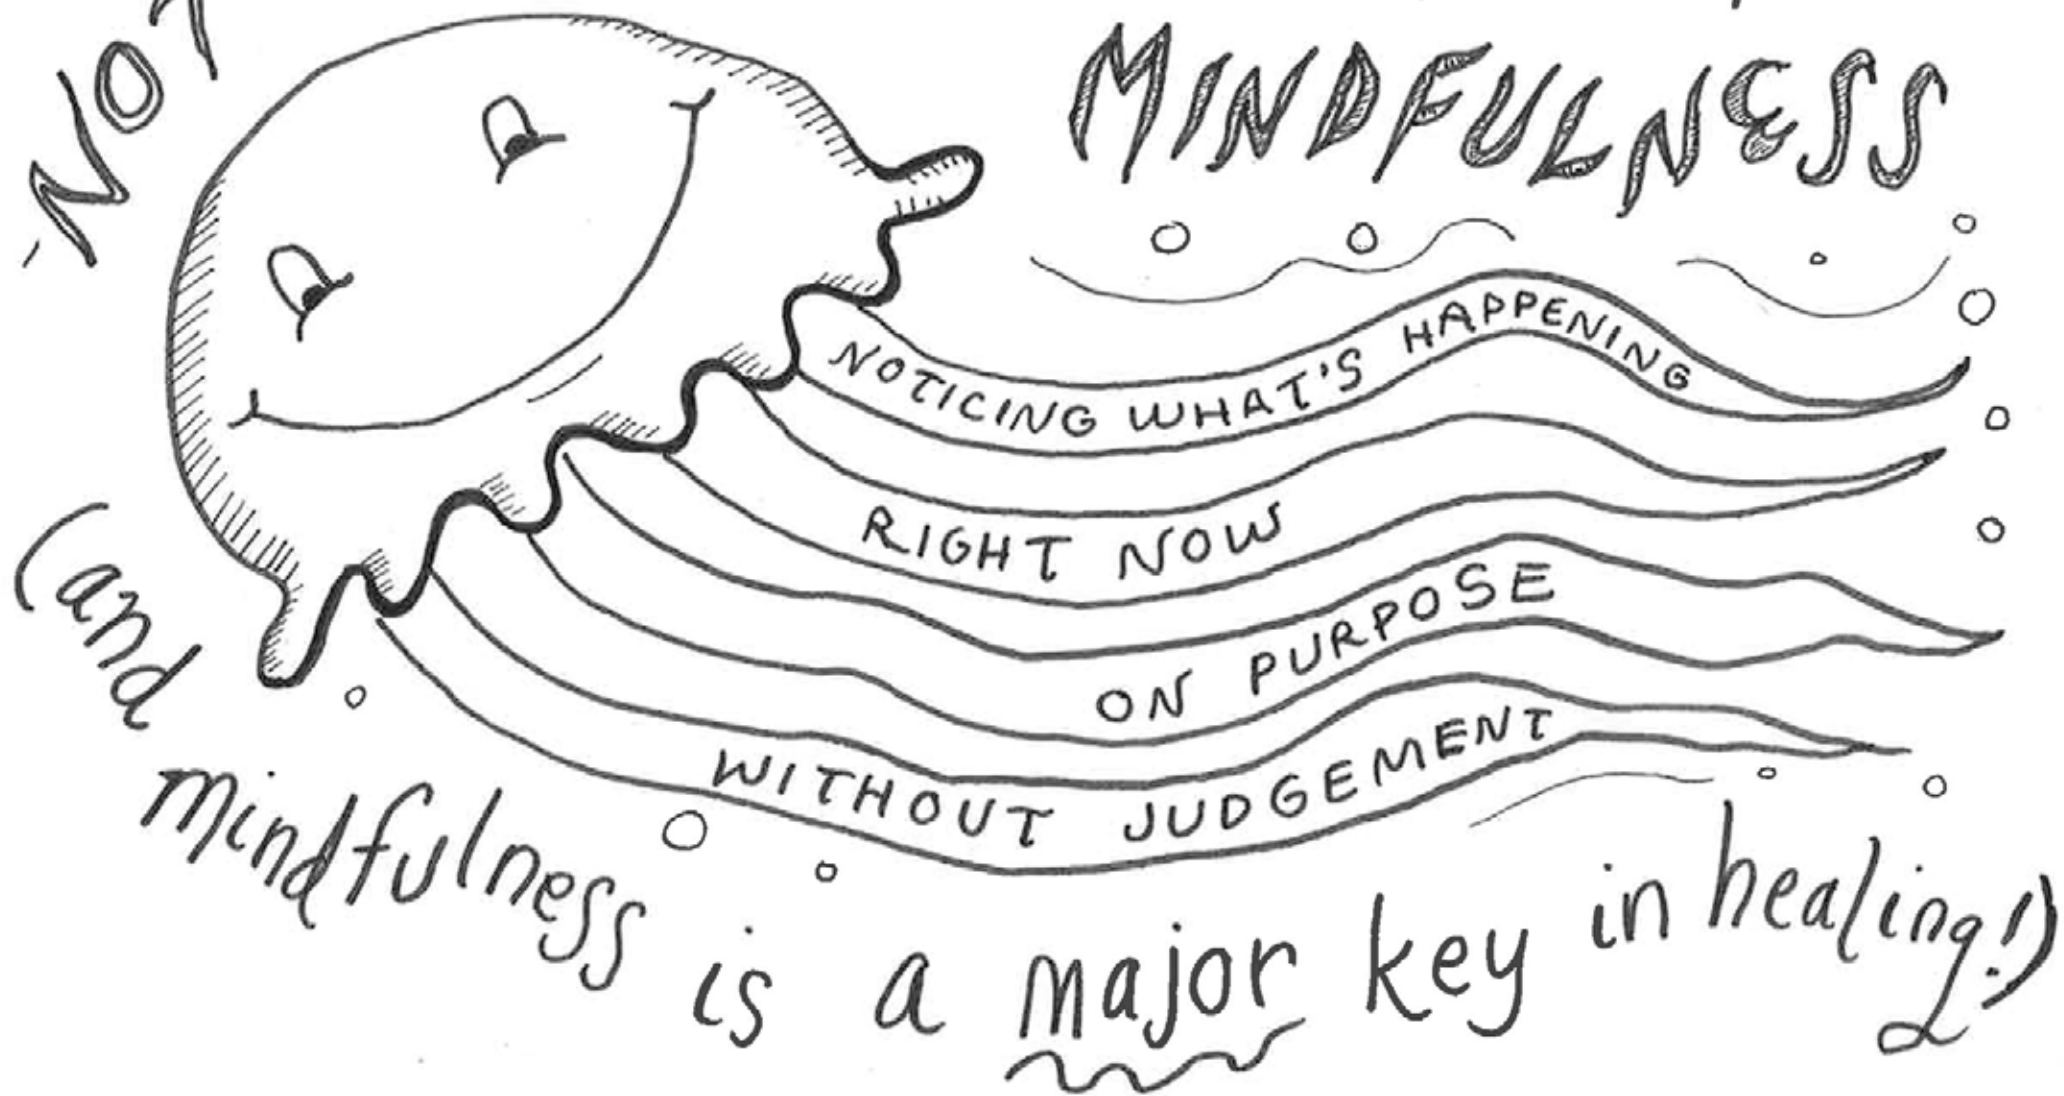 NOT
MINDFULNESS
NOTICING WHAT'S HAPPENING
RIGHT NOW
ON PURPOSE
WITHOUT JUDGEMENT
(and
mindfulness is a major key in healing!)